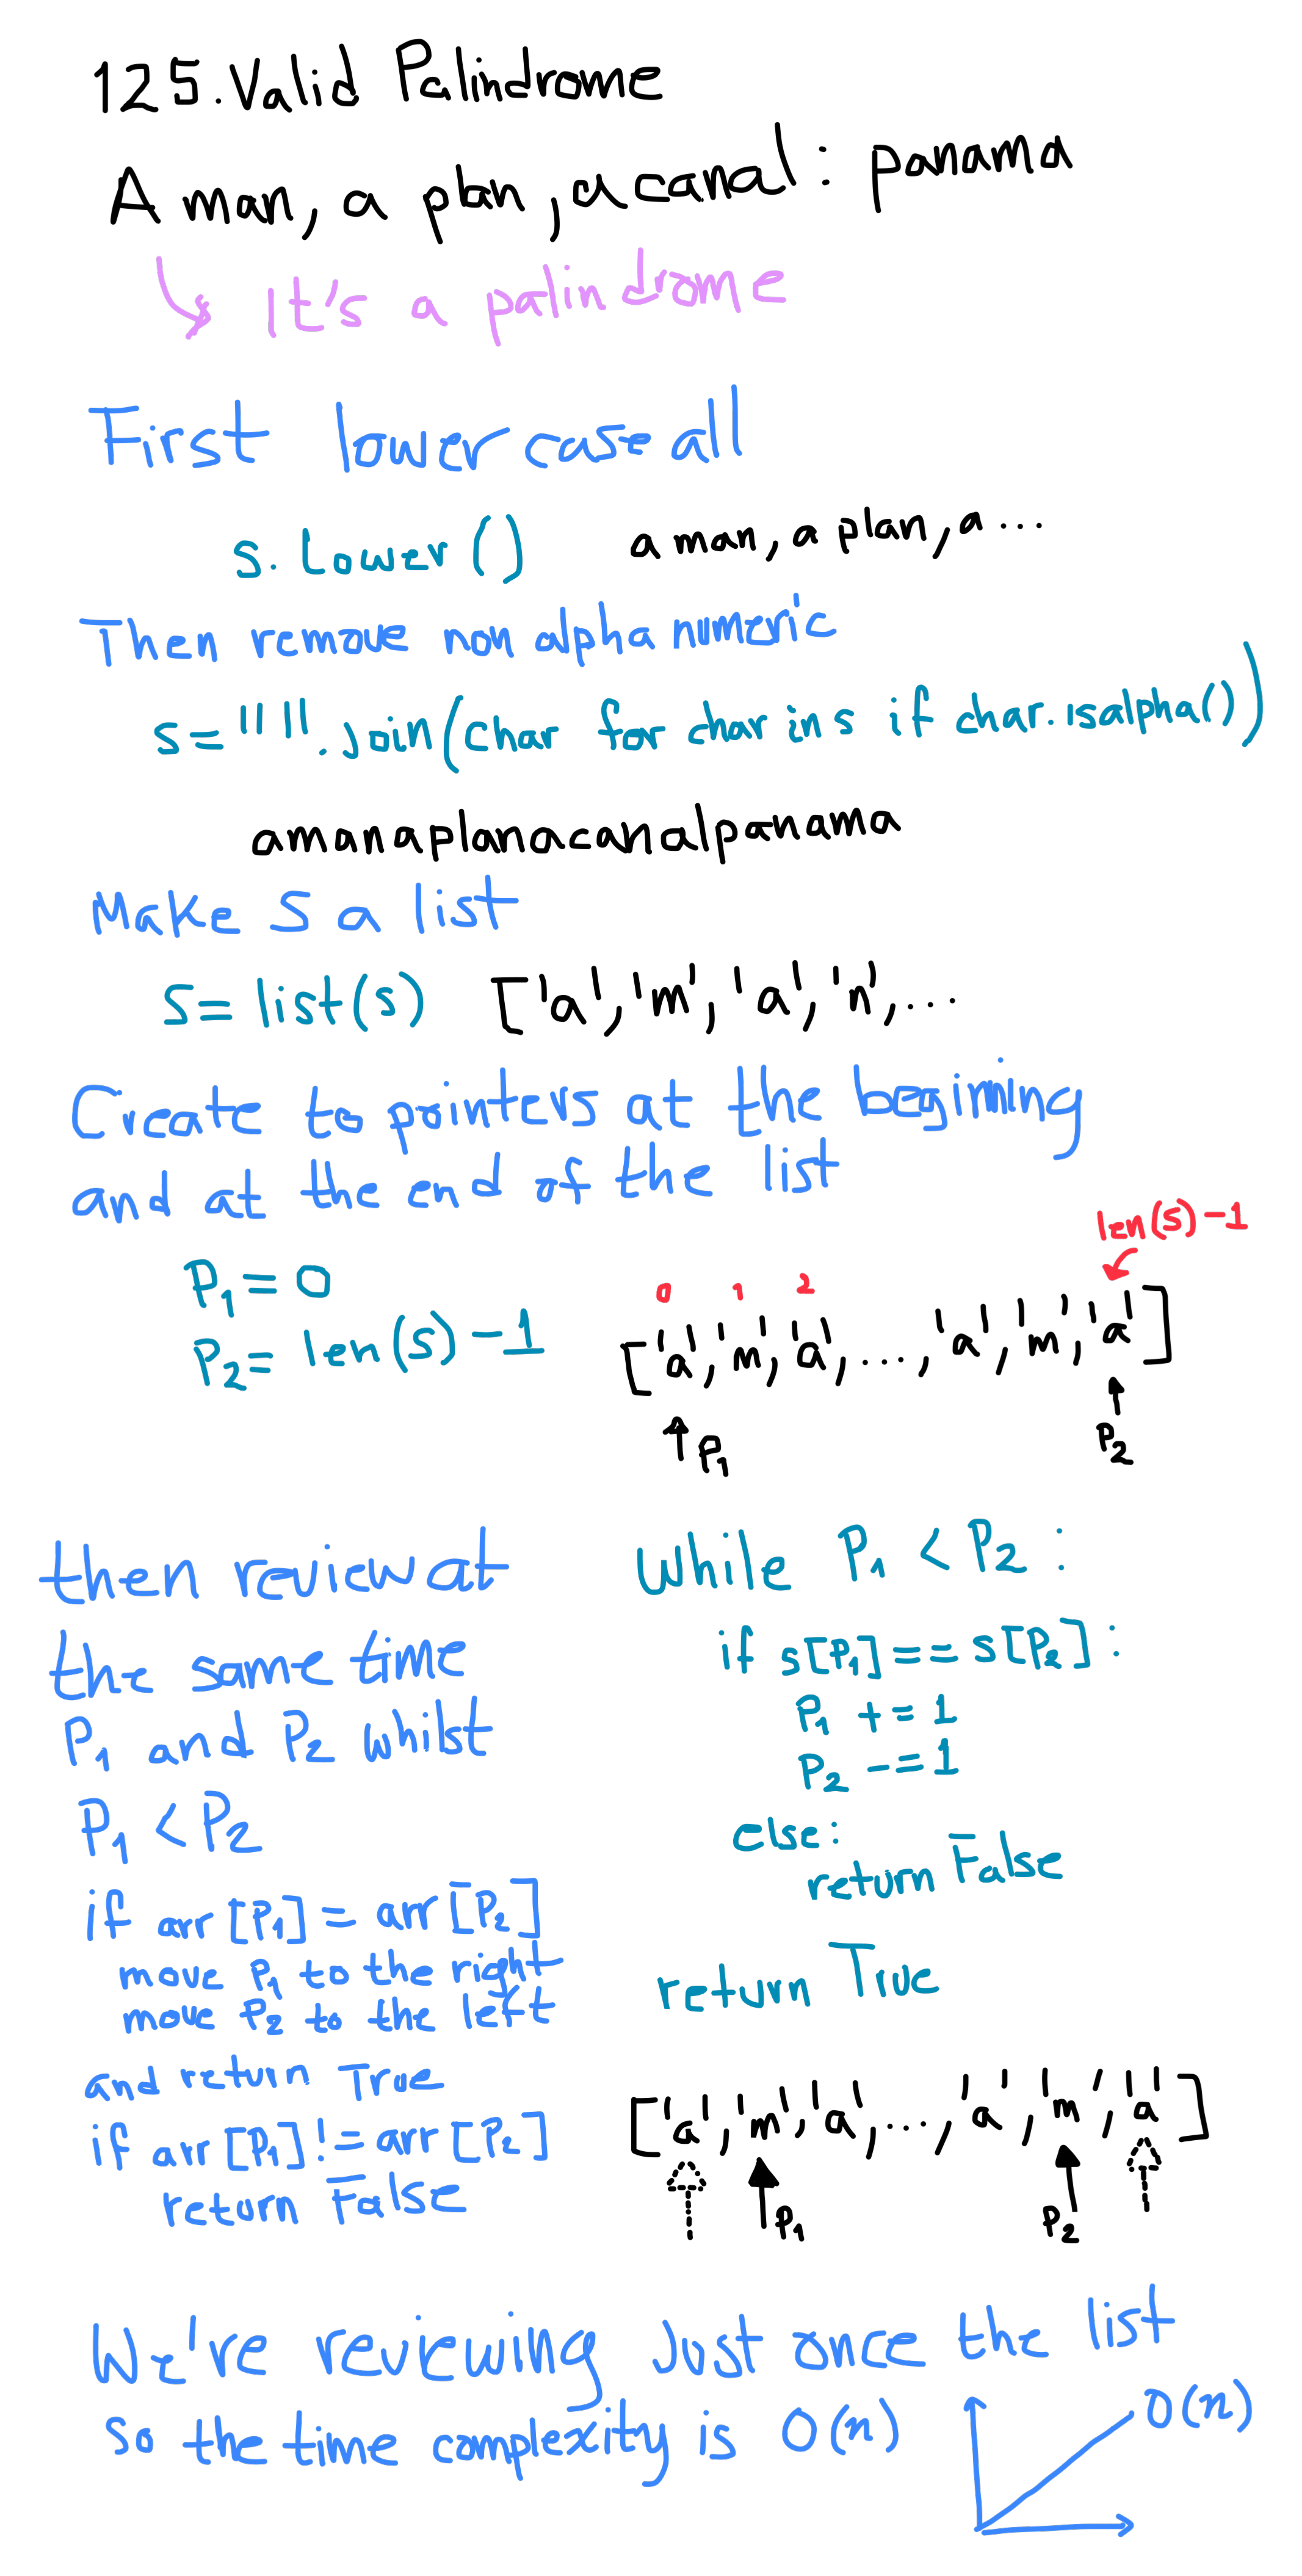 125. Valid Palindrome
A man, a plan, a canal: panama
It's a palindrome
First lowercase all
s.lower() a man, a plan, a...
Then remove non alphanumeric
s="".join(char for char in s if char.isalpha())
amanaplanacanalpanama
Make S a list
S=list(s) ['a','m','a','n',...
Create to pointers at the beginning
and at the end of the list
len(s)-1
P1=0
0 1 2
P2=len(s)-1
['a','m','a',...,'a','m','a']
P1 P2
then review at
the same time
P1 and P2 whilst
P1<P2
if arr[P1]=arr[P2]
move P1 to the right
move P2 to the left
and return True
if arr[P1]!=arr[P2]
return False
while P1<P2:
if s[P1]==s[P2]:
P1 +=1
P2 -=1
else:
return False
return True
['a','m','a',...,'a','m','a']
P1 P2
We're reviewing just once the list
so the time complexity is O(n)
O(n)